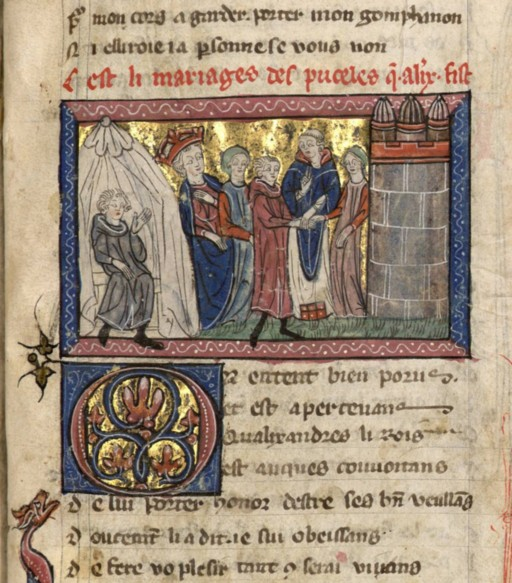 mon cors a garder porter mon gomphanon
Ni esliroie ia psonne se vous non
C est li mariages des puceles q̃ .alix. fist
entent bien porus.
et est apercevans
Qualixandres li Rois
est auques couvoitans
d e lui porter honor destre ses bñ veullãs
d oucement li a dit .ie sui obeissans
d e fere vo plesir tant ꝯ serai vivans